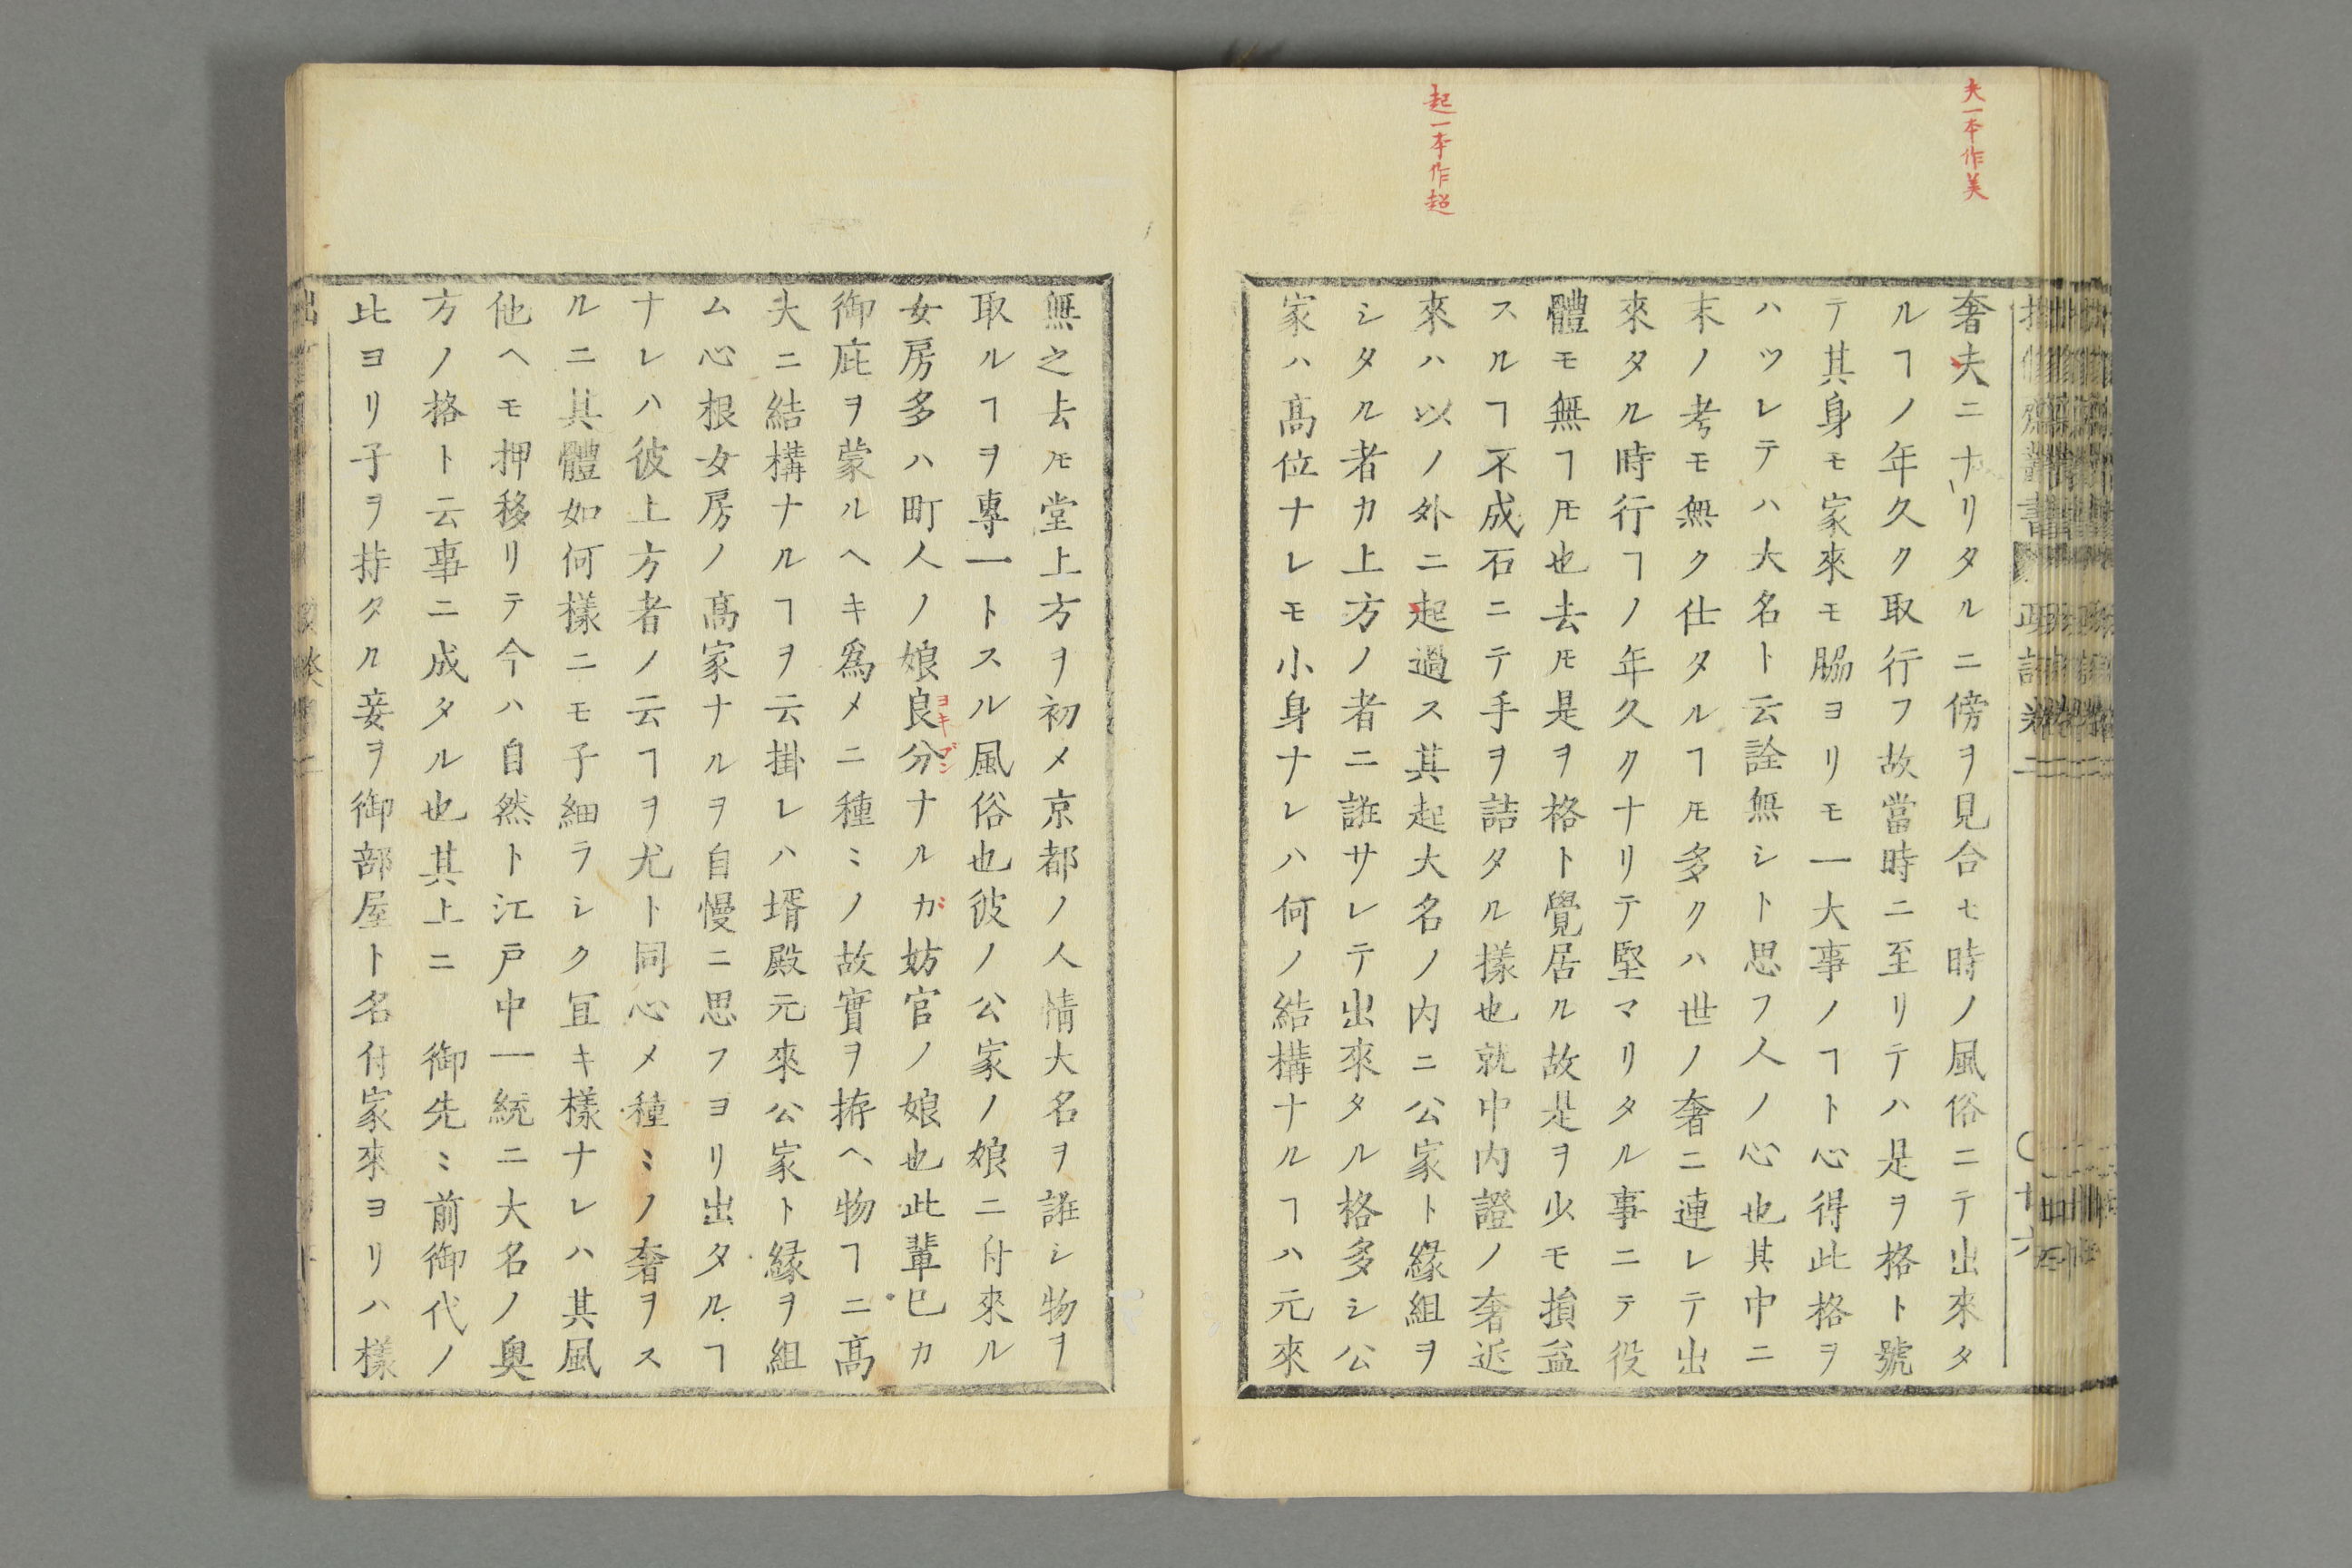 夫一本作美
起一本作超
奢夫ニナリタルニ傍ヲ見合セ時ノ風俗ニテ出來タ
ルヿノ年久ク取行フ故當時ニ至リテハ是ヲ格ト號
テ其身モ家來モ脇ヨリモ一大事ノヿト心得此格ヲ
ハツレテハ大名ト云詮無シト思フ人ノ心也其中ニ
末ノ考モ無ク仕タルヿ𪜈多クハ世ノ奢ニ連レテ出
來タル時行ヿノ年久クナリテ堅マリタル事ニテ役
體モ無ヿ𪜈也去𪜈是ヲ格ト覺居ル故是ヲ少モ損益
スルヿ不成石ニテ手ヲ詰タル樣也就中内證ノ奢近
來ハ以ノ外ニ起過ス其起大名ノ内ニ公家ト緣組ヲ
シタル者カ上方ノ者ニ誑サレテ出來タル格多シ公
家ハ髙位ナレモ小身ナレハ何ノ結構ナルヿハ元來
無之去𪜈堂上方ヲ初メ京都ノ人情大名ヲ誑シ物ヲ
取ルヿヲ專一トスル風俗也彼ノ公家ノ娘ニ付來ル
女房多ハ町人ノ娘良分ナルガ妨官ノ娘也此輩已カ
ヨキブン
御庇ヲ蒙ルヘキ爲メニ種〻ノ故實ヲ拵ヘ物ヿニ髙
大ニ結構ナルヿヲ云掛レハ壻殿元來公家ト緣ヲ組
ム心根女房ノ髙家ナルヲ自慢ニ思フヨリ出タルヿ
ナレハ彼上方者ノ云ヿヲ尤ト同心メ種〻ノ奢ヲス
ルニ其體如何樣ニモ子細ラシク冝キ樣ナレハ其風
他ヘモ押移リテ今ハ自然ト江戸中一統ニ大名ノ奧
方ノ格ト云事ニ成タル也其上ニ　御先〻前御代ノ
比ヨリ子ヲ持タル妾ヲ御部屋ト名付家來ヨリハ樣